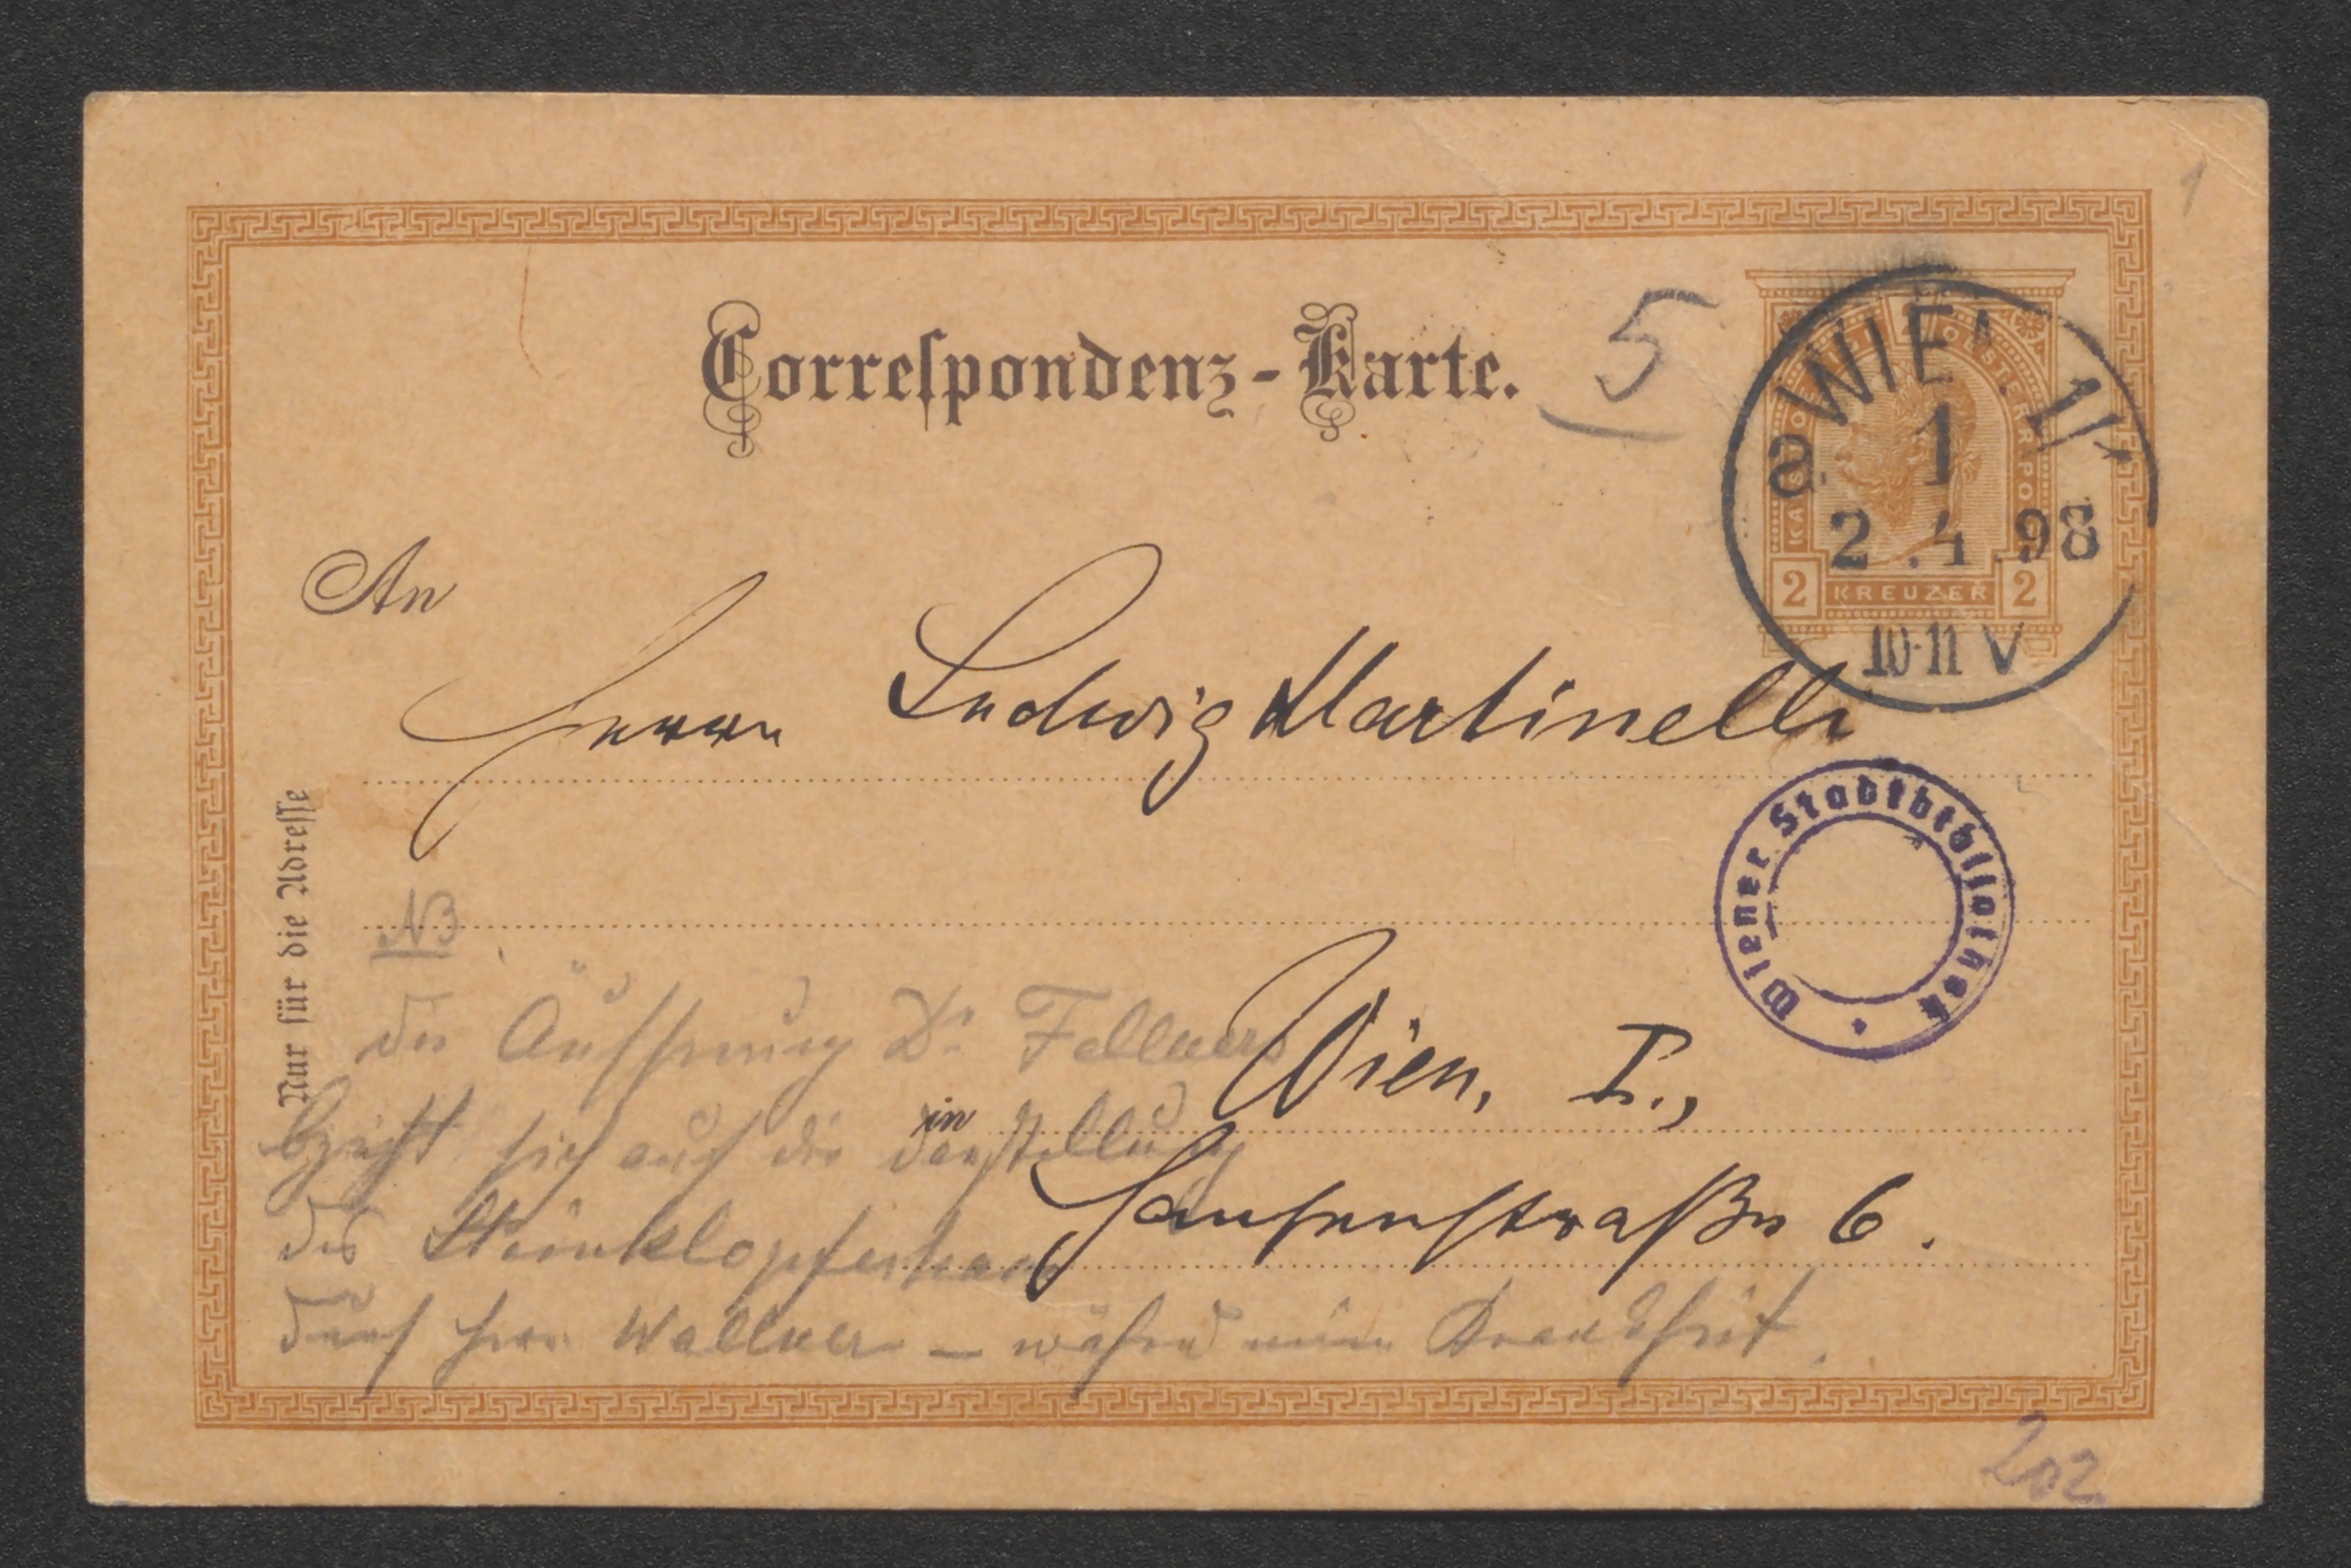 1
Correſpondenz-Karte.
5
a. WIEN 1/1
1
2.4.98
10-11 V
KREUZER
2 2
An
Herrn Ludwig Martinelli
Wiener Stadtbibliothek
Nur für die Adreſſe
NB
Die Äußerung Dr Fellners
bezieht sich auf die Darstellung
des Steinklopferhans
durch Herrn Wallner – während meiner Krankheit.
Wien, I.,
in
Hansenstraße 6.
202